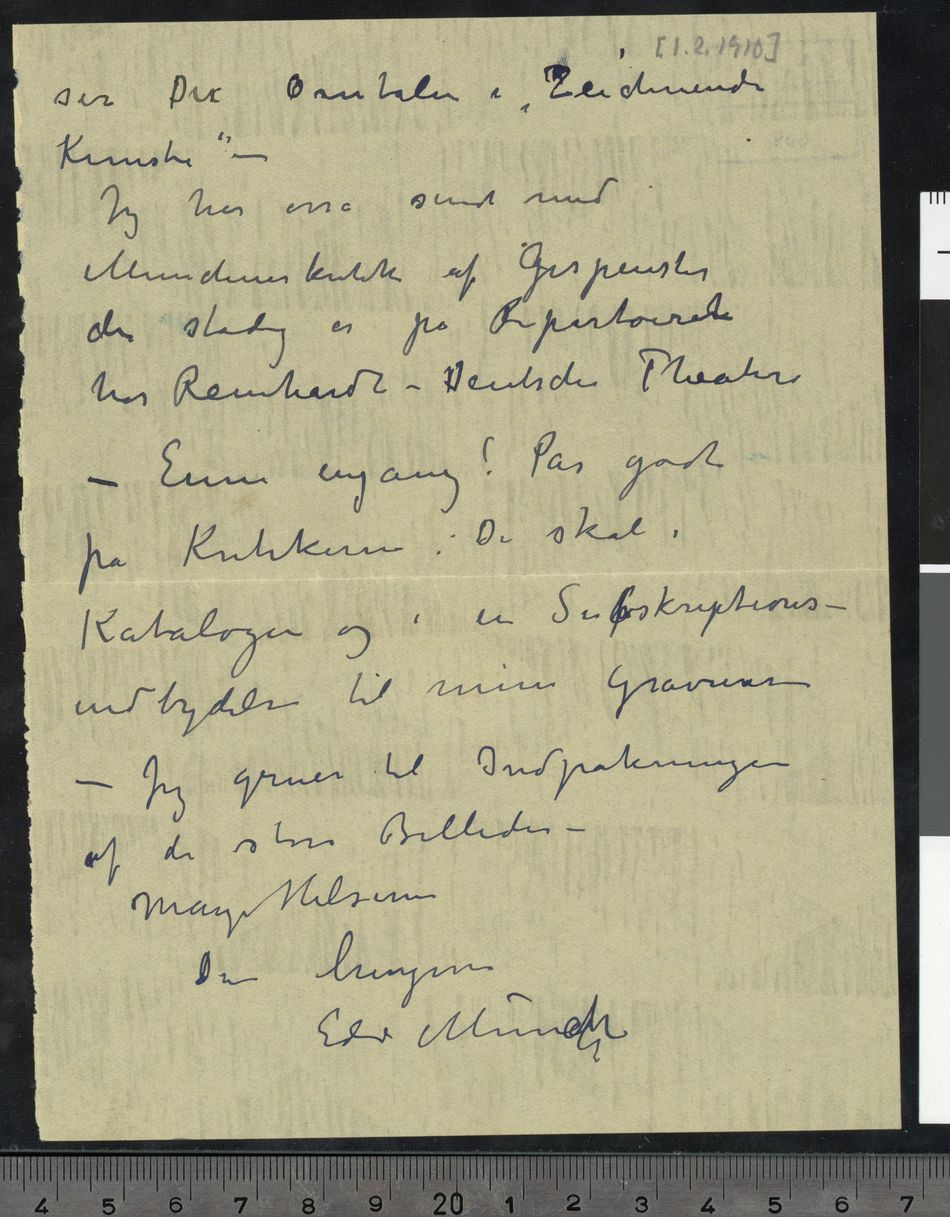 [1.2.1910]
ser De Omtalen i „Zeichnende
Kunste“ –
Jeg har også sendt med
Münchenerkritik af Gespenster
der stadig er på Repertoiret
hos Reinhardt – Deutsches Theater
– Ennu engang! Pas godt
på Kritikerne: De skal i
Katalogen og i en Subskriptions–
indbydelse til mine Gravurer
– Jeg gruer til Indpakningen
af de store Billeder –
Mange Hilsener
Din hengivne
Edv Munch
4 5 6 7 8 9 20 1 2 3 4 5 6 7